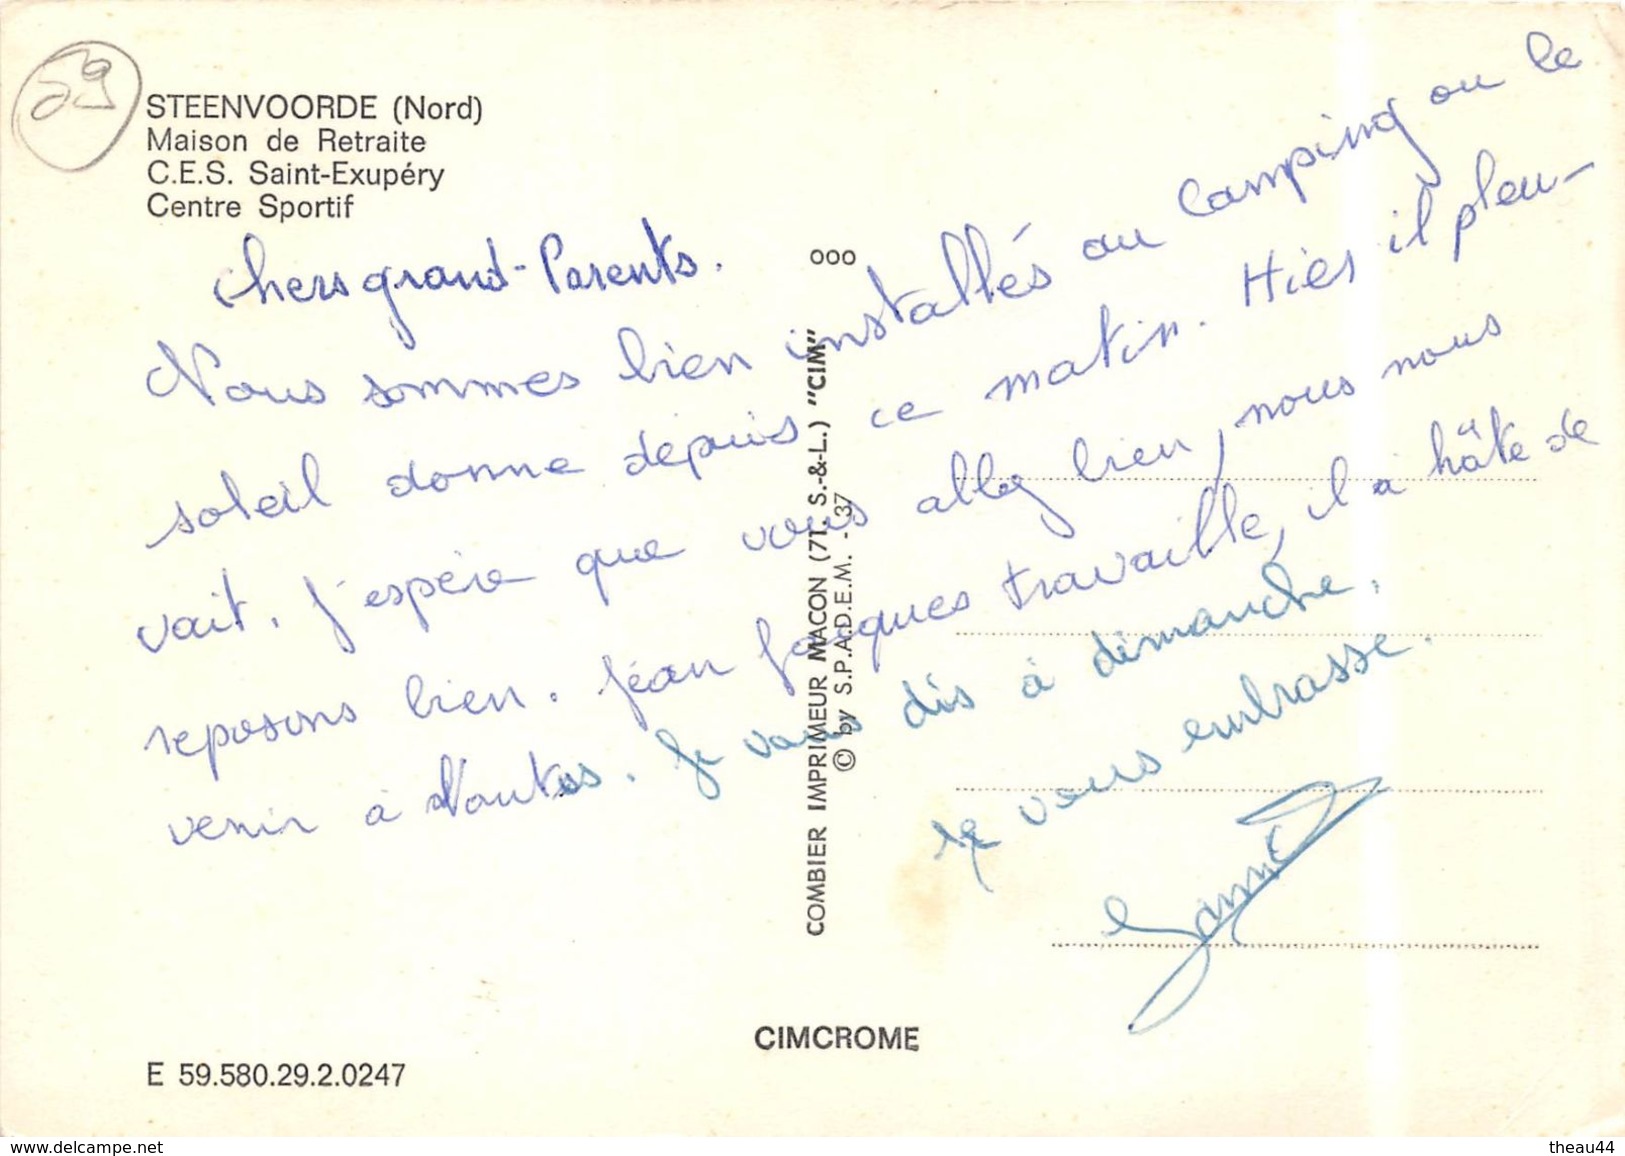 59
STEENVOORDE (Nord)
Maison de Retraite
C.E.S. Saint-Exupéry
Centre Sportif
chers grand-Parents.
Nous sommes bien installés au camping ou le
soleil donne depuis ce matin. Hier il pleu-
vait. J'espère que vous allez bien, nous nous
reposons bien. Jean Jacques travaille, il a hâte de
venir à Nantes. Je vous dis à dimanche.
je vous embrasse.
ooo
COMBIER IMPRIMEUR MACON (71. S.-&-L.) "CIM"
© by S.P.A.D.E.M. - 37
CIMCROME
E 59.580.29.2.0247
www.delcampe.net
theau44